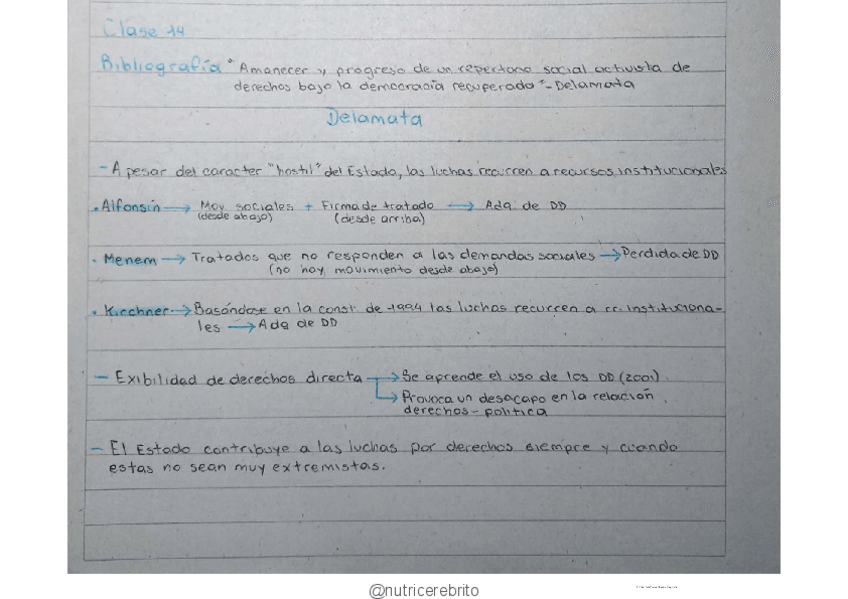 Clase 14
Bibliografía "Amanecer y progreso de un repertorio social activista de
derechos bajo la democracia recuperada" - Delamata
Delamata
- A pesar del caracter "hostil" del Estado, las luchas recurren a recursos institucionales
• Alfonsín → Mov sociales + Firma de tratado → Ada de DD
(desde abajo) (desde arriba)
• Menem → Tratados que no responden a las demandas sociales → Perdida de DD
(no hay movimiento desde abajo)
• Kirchner → Basándose en la const de 1994 las luchas recurren a rr. instituciona-
les → Ada de DD
- Exibilidad de derechos directa → Se aprende el uso de los DD (2001).
→ Provoca un desacapo en la relación
derechos - politica
- El Estado contribuye a las luchas por derechos siempre y cuando
estas no sean muy extremistas.
@nutricerebrito